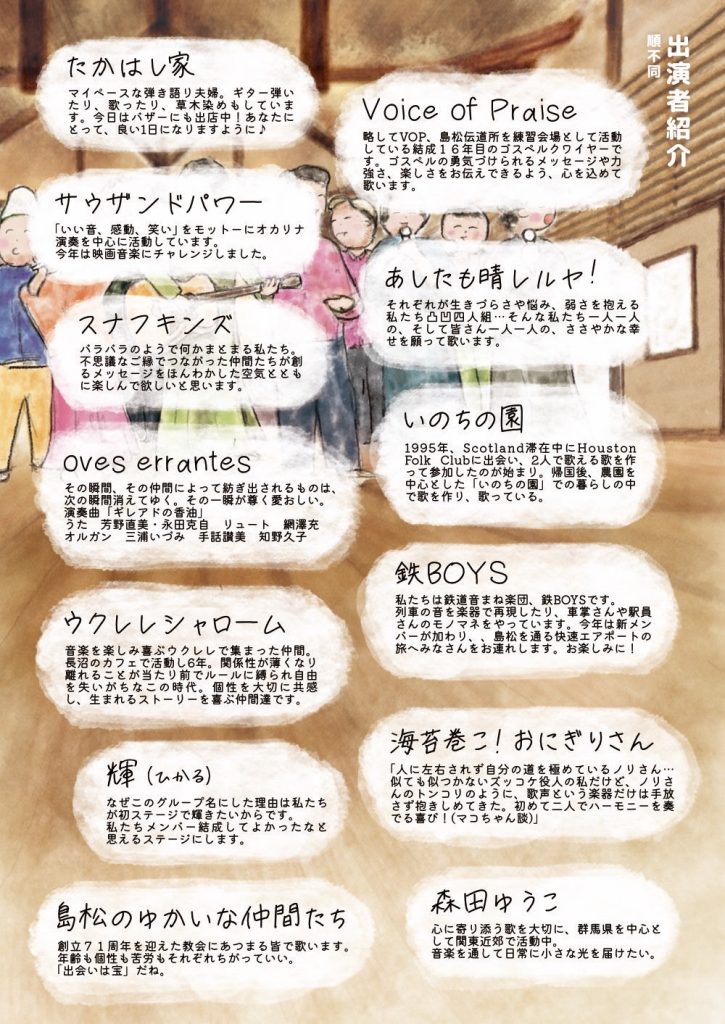 出演者紹介
順不同
たかはし家
マイペースな弾き語り夫婦。ギター弾い
たり、歌ったり、草木染めもしていま
す。今日はバザーにも出店中！あなたに
とって、良い1日になりますように♪
サウザンドパワー
「いい音、感動、笑い」をモットーにオカリナ
演奏を中心に活動しています。
今年は映画音楽にチャレンジしました。
スナフキンズ
バラバラのようで何かまとまる私たち。
不思議なご縁でつながった仲間たちが創
るメッセージをほんわかした空気ととも
に楽しんで欲しいと思います。
oves errantes
その瞬間、その仲間によって紡ぎ出されるものは、
次の瞬間消えてゆく。その一瞬が尊く愛おしい。
演奏曲「ギレアドの香油」
うた　芳野直美・永田克自　リュート　網澤充
オルガン　三浦いづみ　手話讃美　知野久子
ウクレレシャローム
音楽を楽しみ喜ぶウクレレで集まった仲間。
長沼のカフェで活動し6年。関係性が薄くなり
離れることが当たり前でルールに縛られ自由
を失いがちなこの時代。個性を大切に共感
し、生まれるストーリーを喜ぶ仲間達です。
輝（ひかる）
なぜこのグループ名にした理由は私たち
が初ステージで輝きたいからです。
私たちメンバー結成してよかったなと
思えるステージにします。
島松のゆかいな仲間たち
創立７１周年を迎えた教会にあつまる皆で歌います。
年齢も個性も苦労もそれぞれちがっていい。
「出会いは宝」だね。
Voice of Praise
略してVOP、島松伝道所を練習会場として活動
している結成１６年目のゴスペルクワイヤーで
す。ゴスペルの勇気づけられるメッセージや力
強さ、楽しさをお伝えできるよう、心を込めて
歌います。
あしたも晴レルヤ！
それぞれが生きづらさや悩み、弱さを抱える
私たち凸凹四人組…そんな私たち一人一人
の、そして皆さん一人一人の、ささやかな幸
せを願って歌います。
いのちの園
1995年、Scotland滞在中にHouston
Folk Clubに出会い、2人で歌える歌を作
って参加したのが始まり。帰国後、農園を
中心とした「いのちの園」での暮らしの中
で歌を作り、歌っている。
鉄BOYS
私たちは鉄道音まね楽団、鉄BOYSです。
列車の音を楽器で再現したり、車掌さんや駅員
さんのモノマネをやっています。今年は新メン
バーが加わり、、島松を通る快速エアポートの
旅へみなさんをお連れします。お楽しみに！
海苔巻こ！おにぎりさん
「人に左右されず自分の道を極めているノリさん…
似ても似つかないズッコケ役人の私だけど、ノリさ
んのトンコリのように、歌声という楽器だけは手放
さず抱きしめてきた。初めて二人でハーモニーを奏
でる喜び！(マコちゃん談)」
森田ゆうこ
心に寄り添う歌を大切に、群馬県を中心と
して関東近郊で活動中。
音楽を通して日常に小さな光を届けたい。